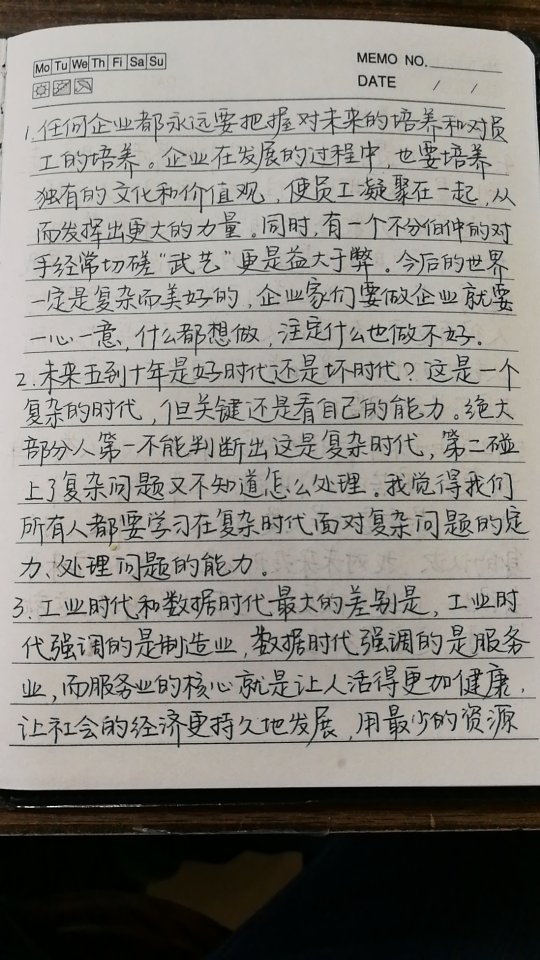 Mo Tu We Th Fi Sa Su
MEMO NO.
DATE / /
1.任何企业都永远要把握对未来的培养和对员
工的培养。企业在发展的过程中,也要培养
独有的文化和价值观,使员工凝聚在一起,从
而发挥出更大的力量。同时,有一个不分伯仲的对
手经常切磋“武艺”更是益大于弊。今后的世界
一定是复杂而美好的,企业家们要做企业就要
一心一意,什么都想做,注定什么也做不好。
2.未来五到十年是好时代还是坏时代?这是一个
复杂的时代,但关键还是看自己的能力。绝大
部分人第一不能判断出这是复杂时代,第二碰
上了复杂问题又不知道怎么处理。我觉得我们
所有人都要学习在复杂时代面对复杂问题的定
力、处理问题的能力。
3.工业时代和数据时代最大的差别是,工业时
代强调的是制造业,数据时代强调的是服务
业,而服务业的核心就是让人活得更加健康,
让社会的经济更持久地发展,用最少的资源